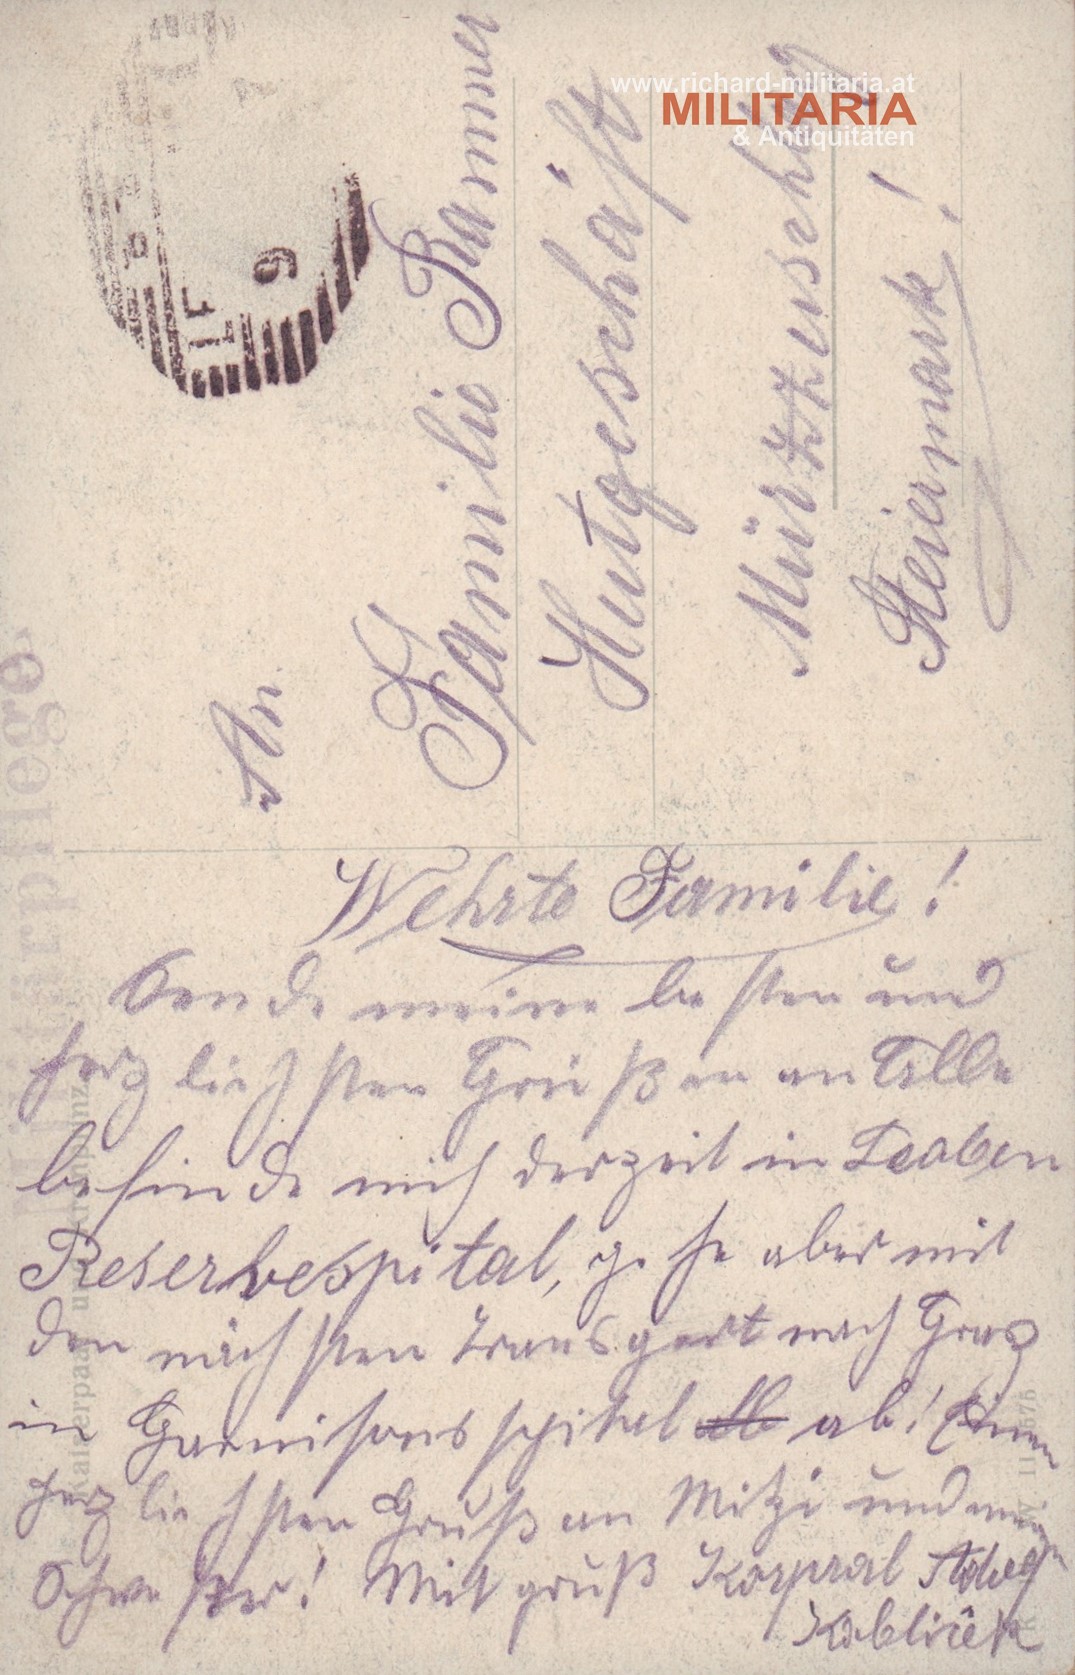 www.richard-militaria.at
MILITARIA
& Antiquitäten
An
Familie Rammer
Hutgeschäft
Mürzzuschlag
Steiermark!
Wehrte Familie!
Sende meine besten und
herzlichsten Grüßen an Alle
befinde mich derzeit in Leoben
Reservespital, gehe aber mit
den nächsten Transport nach Graz
in Garnisonsspital ab! Einen
herzlichsten Gruß an Mitzi und meine
Schwester! Mit gruß Korporal